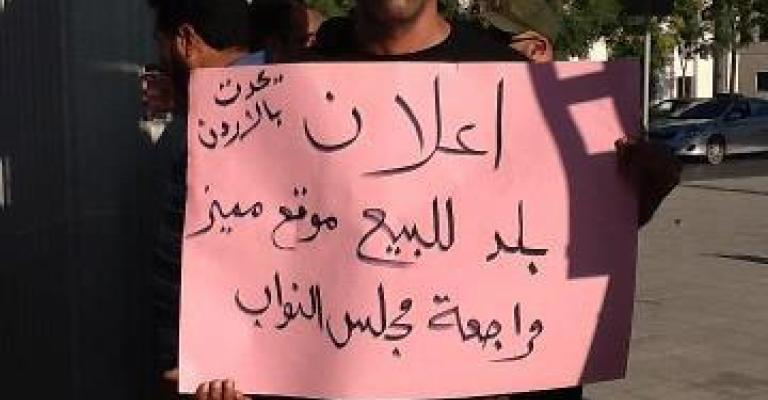 اعلان
يحدث
بالاردن
بلد للبيع موقع مميز
مراجعة مجلس النواب